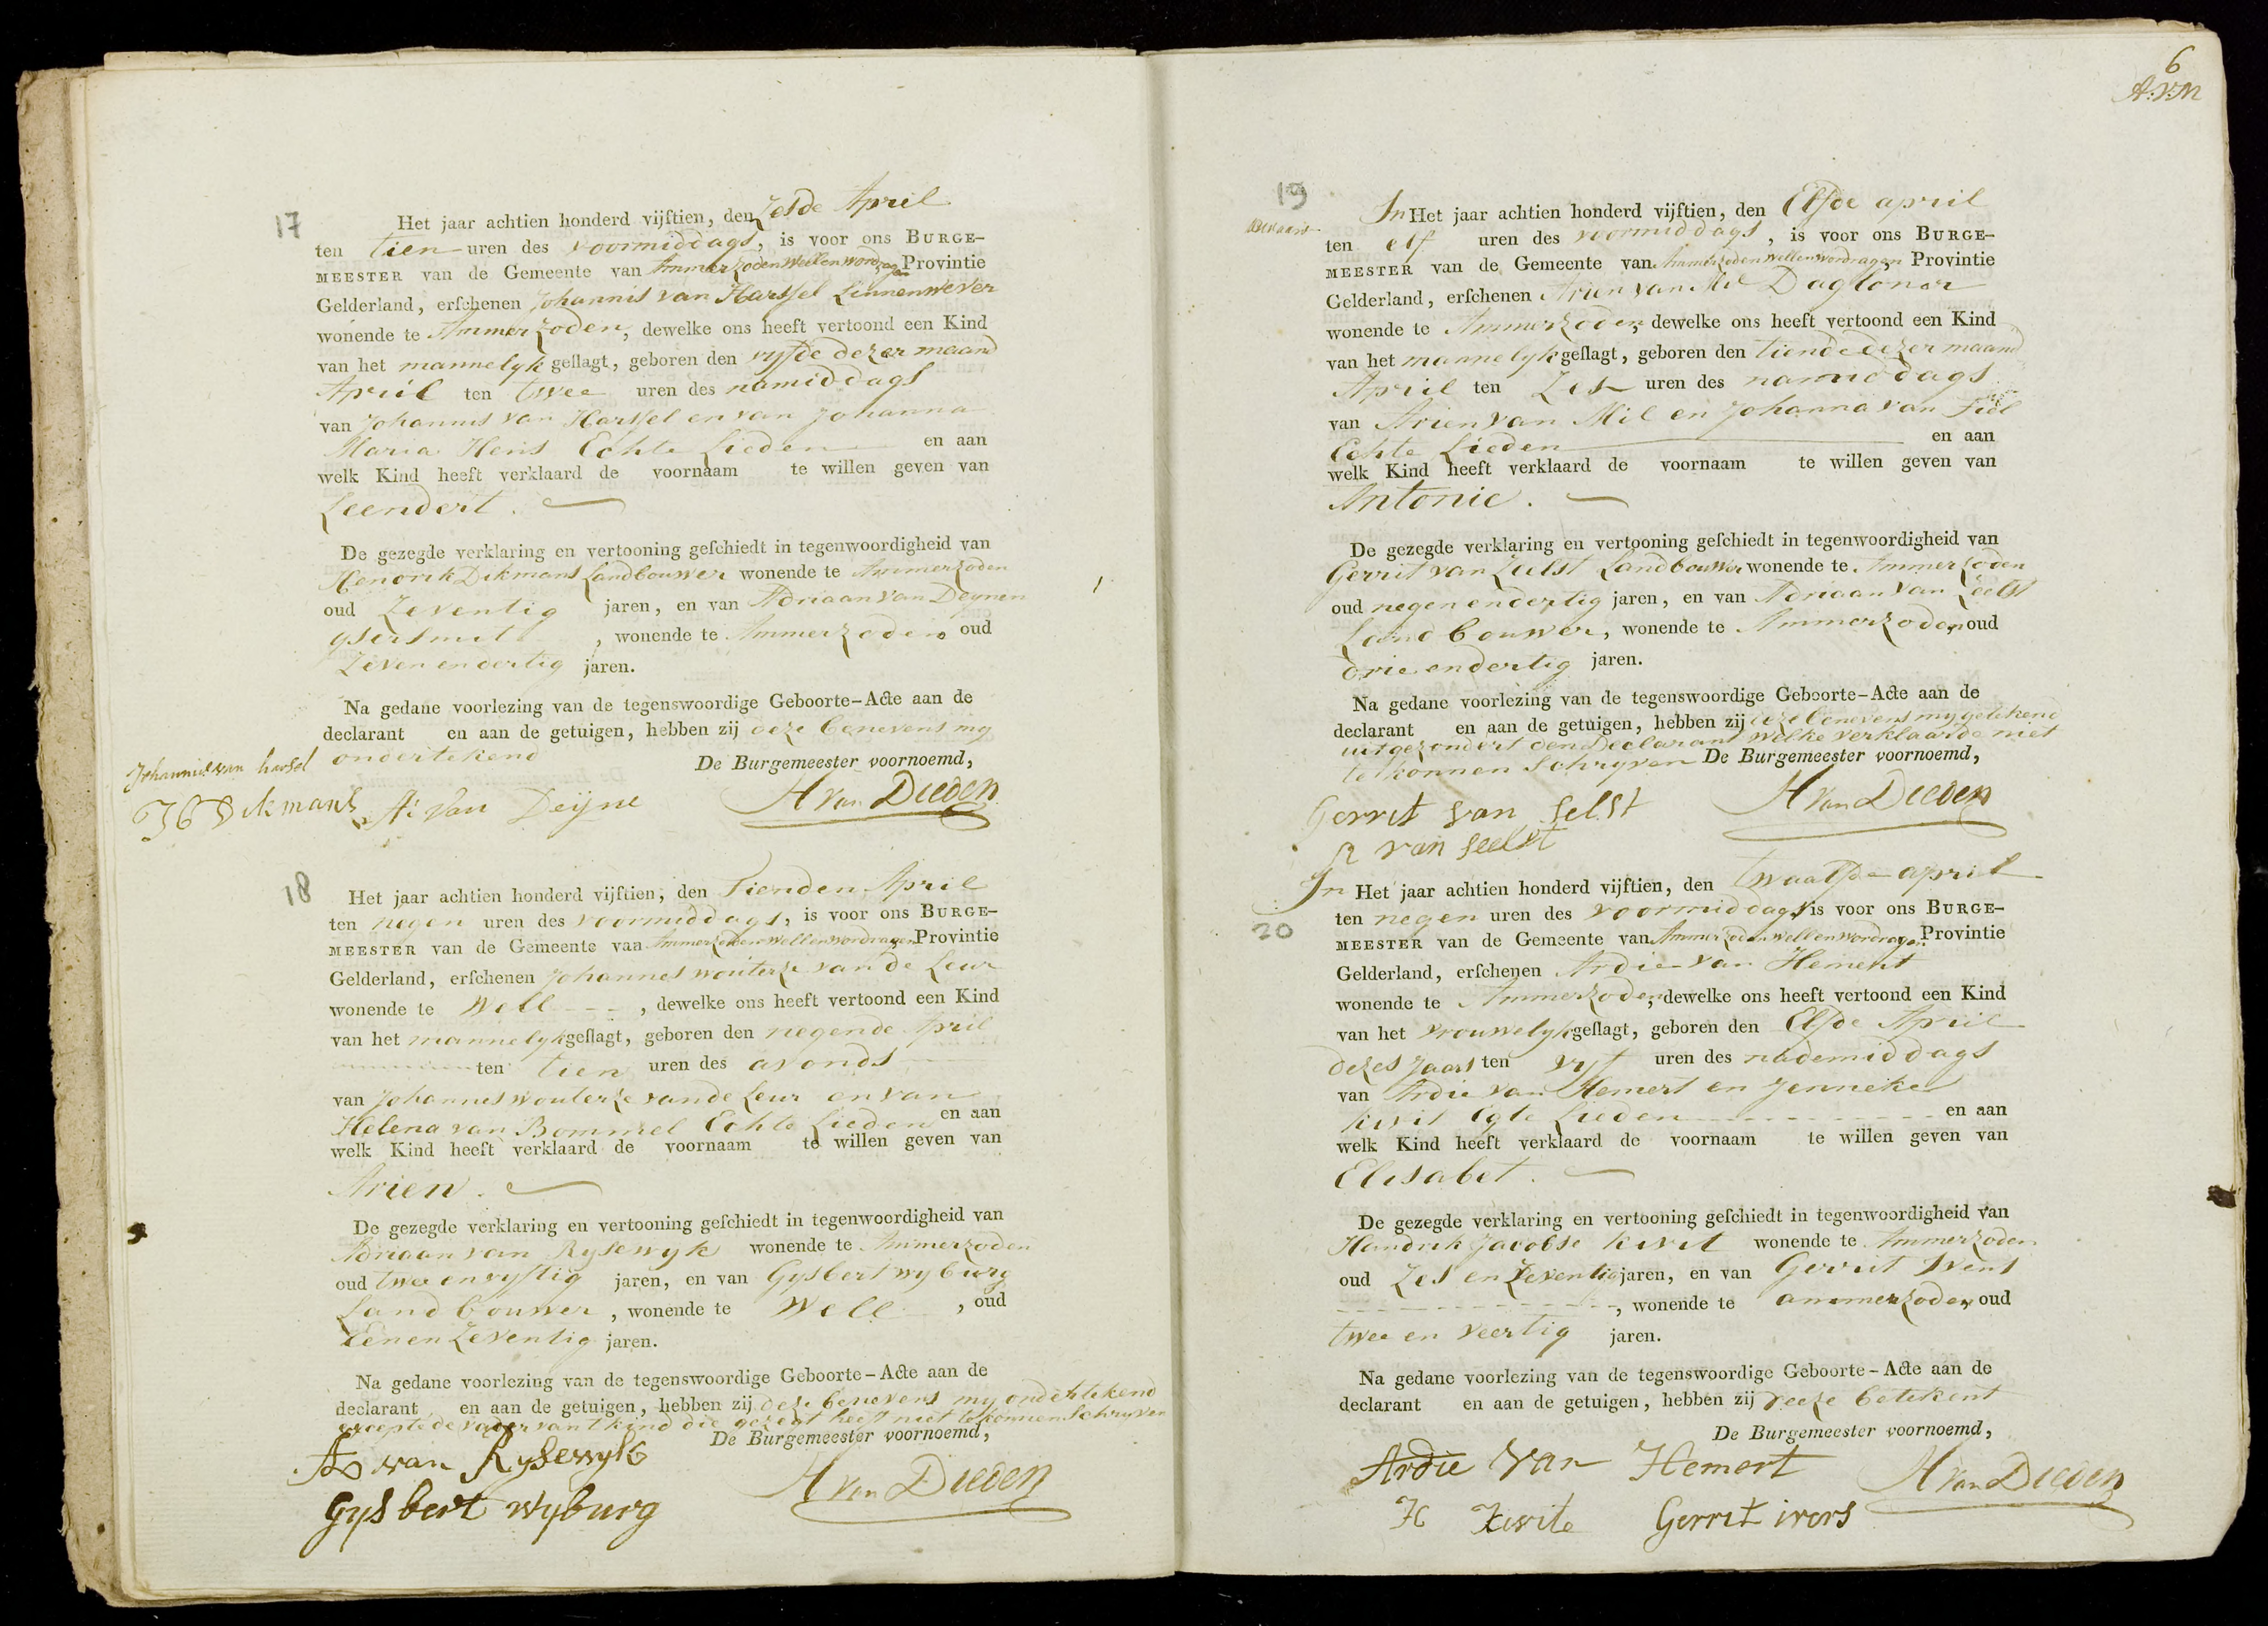 17
Het jaar achtien honderd vijftien, den Zesde April
ten tien uren des voormiddags, is voor ons BURGE-
MEESTER van de Gemeente van Ammerzoden Wellen Wordragen Provintie
Gelderland, erschenen Johannis van Harssel Linnenwever
wonende te Ammerzoden, dewelke ons heeft vertoond een Kind
van het mannelyk geslagt, geboren den vyfde dezer maand
April ten twee uren des namiddags
van Johannis van Harssel en van Johanna
Maria Hens Echte Lieden en aan
welk Kind heeft verklaard de voornaam te willen geven van
Leendert.
De gezegde verklaring en vertooning geschiedt in tegenwoordigheid van
Hendrik Dikmans Landbouwer wonende te Ammerzoden
oud Zeventig jaren, en van Adriaan van Deynen
ysersmit, wonende te Ammerzoden oud
Zeven en dertig jaren.
Na gedane voorlezing van de tegenswoordige Geboorte-Acte aan de
declarant en aan de getuigen, hebben zij deze benevens my
ondertekend
De Burgemeester voornoemd,
Johannis van harsel
H Dikmans A: Van Deyne H van Dieden
18
Het jaar achtien honderd vijftien, den Tienden April
ten negen uren des voormiddags, is voor ons BURGE-
MEESTER van de Gemeente van Ammerzoden Wellen Wordragen Provintie
Gelderland, erschenen Johannes Wouterze van de Leur
wonende te Well - - -, dewelke ons heeft vertoond een Kind
van het mannelyk geslagt, geboren den negende April
ten tien uren des avonds
van Johannes Wouterze vande Leur en van
Helena van Bommel Echte Lieden en aan
welk Kind heeft verklaard de voornaam te willen geven van
Arien.
De gezegde verklaring en vertooning geschiedt in tegenwoordigheid van
Adriaan van Rysewyk wonende te Ammerzoden
oud twee en vyftig jaren, en van Gysbert Wyburg
Landbouwer, wonende te Well, oud
Eenen Zeventig jaren.
Na gedane voorlezing van de tegenswoordige Geboorte-Acte aan de
declarant en aan de getuigen, hebben zij deze benevens my ondertekend
excepte de vader van t kind die gezegt heeft niet te konnen Schryven
De Burgemeester voornoemd,
A van Rysewyk
Gysbert Wyburg H van Dieden
6
A:V:M
19
In Het jaar achtien honderd vijftien, den Elfde april
ten elf uren des voormiddags, is voor ons BURGE-
MEESTER van de Gemeente van Ammerzoden Wellen Wordragen Provintie
Gelderland, erschenen Arien van Mil Dagloner
wonende te Ammerzoden, dewelke ons heeft vertoond een Kind
van het mannelyk geslagt, geboren den tiende dezer maand
April ten Zes uren des namiddags
van Arien van Mil en Johanna van
Echte Lieden en aan
welk Kind heeft verklaard de voornaam te willen geven van
Antonie.
De gezegde verklaring en vertooning geschiedt in tegenwoordigheid van
Gerrit van Zelst Landbouwer wonende te Ammerzoden
oud negen en dertig jaren, en van Adriaan van Zeelst
Landbouwer, wonende te Ammerzoden oud
drie en dertig jaren.
Na gedane voorlezing van de tegenswoordige Geboorte-Acte aan de
declarant en aan de getuigen, hebben zij deze benevens my getekend
uitgezondert den Declarant welke verklaarde niet
te konnen Schryven De Burgemeester voornoemd,
Gerrit van selst H van Dieden
A van seelst
20
In Het jaar achtien honderd vijftien, den twaalfde april
ten negen uren des voormiddags is voor ons BURGE-
MEESTER van de Gemeente van Ammerzoden Wellen Wordragen Provintie
Gelderland, erschenen Ardie van Hemert
wonende te Ammerzoden, dewelke ons heeft vertoond een Kind
van het vrouwelyk geslagt, geboren den Elfde April
dezes Jaars ten vyf uren des nademiddags
van Ardie van Hemert en Jenneke
kivit Egte Lieden en aan
welk Kind heeft verklaard de voornaam te willen geven van
Elisabet.
De gezegde verklaring en vertooning geschiedt in tegenwoordigheid van
Hendrik Jacobse kivit wonende te Ammerzoden
oud Zes en Zeventig jaren, en van Gerrit
, wonende te ammerzoden oud
twee en veertig jaren.
Na gedane voorlezing van de tegenswoordige Geboorte-Acte aan de
declarant en aan de getuigen, hebben zij deeze betekent
De Burgemeester voornoemd,
Ardie Van Hemert H van Dieden
H Kivite Gerrit ivers